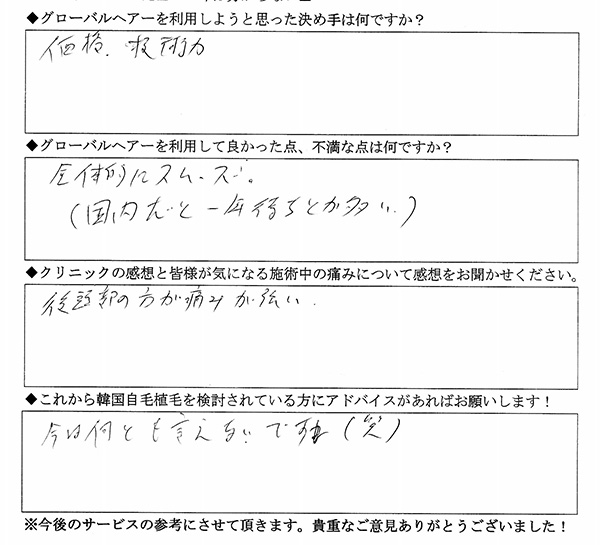 ◆グローバルヘアーを利用しようと思った決め手は何ですか？
価格、技術力
◆グローバルヘアーを利用して良かった点、不満な点は何ですか？
全体的にスムーズ。
（国内だと一年待ちとか多い）
◆クリニックの感想と皆様が気になる施術中の痛みについて感想をお聞かせください。
後頭部の方が痛みが強い.
◆これから韓国自毛植毛を検討されている方にアドバイスがあればお願いします！
今は何とも言えないですね（笑）
※今後のサービスの参考にさせて頂きます。貴重なご意見ありがとうございました！